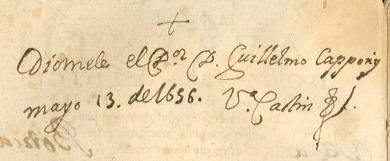 Diomele el Por P. Guillelmo Cappony
mayo 13. de 1656. Va. Castin